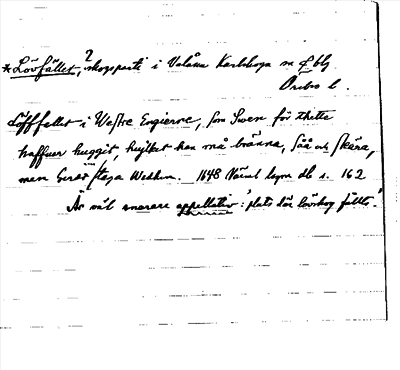 *Lövfallet, ? skogsparti i Valåsen Karlskoga sn o. blg
Örebro l.
Löffallet i Westre Engierne, som Swen för thette
haffuer huggit, huilket han må bränna, såå och skära,
men Gerås staga Wedhen. 1648 Värml lagm db s. 162
Är väl snarare appellativ: 'plats där lövskog fällts'.